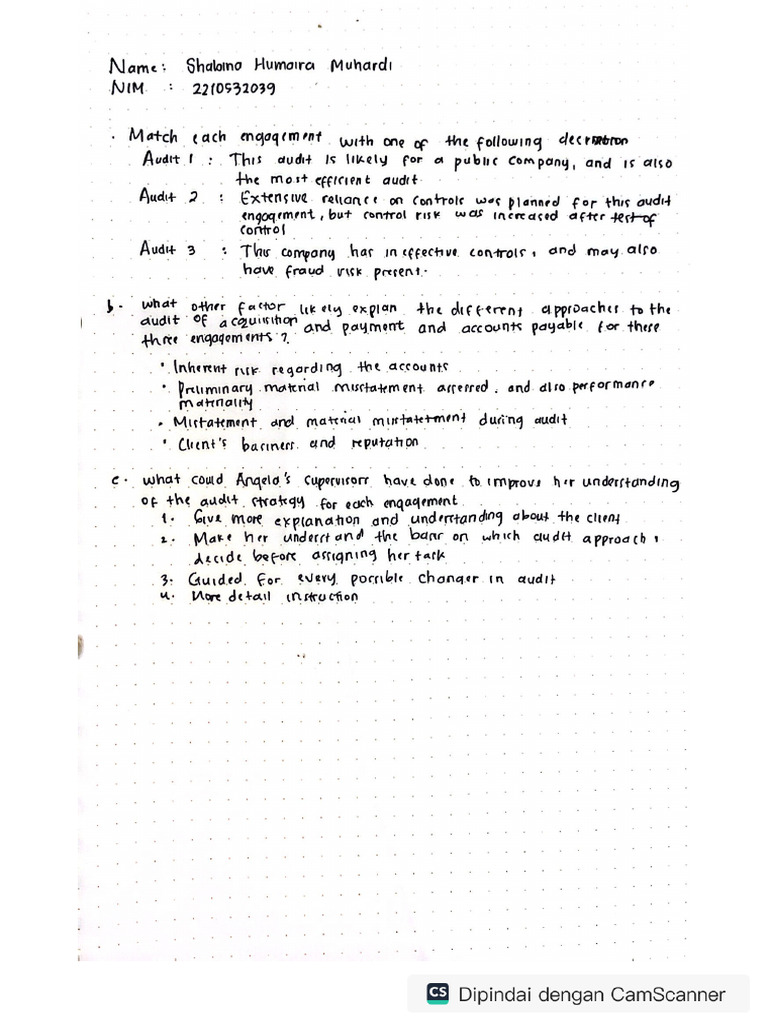 Name : Shabina Humaira Muhardi
NIM : 2210532039
. Match each engagement with one of the following
Audit 1 : This audit is likely for a public company, and is also
the most efficient audit
Audit 2 : Extensive reliance on controls was planned for this audit
engagement, but control risk was increased after test of
control
Audit 3 : This company has ineffective controls, and may also
have fraud risk present.
b. what other factor likely explan the different approaches to the
audit of acquisition and payment and accounts payable for these
three engagements ?
• Inherent risk regarding the accounts
• Preliminary material misstatement assessed, and also performance
matriality
• Misstatement and material misstatetment during audit
• Client's business and reputation
c. what could Angela's supervisors have done to improvs her understanding
of the audit strategy for each engagement
1. Give more explanation and understanding about the client
2. Make her understand the basis on which audit approach,
decide before assigning her task
3. Guided for every possible changes in audit
4. More detail instruction
CS Dipindai dengan CamScanner